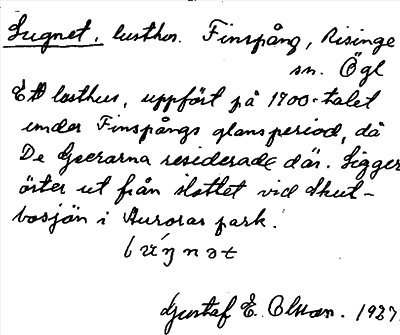 Lugnet. lusthus. Finspång, Risinge
sn. Ögl
Ett lusthus, uppfört på 1700-talet
under Finspångs glansperiod, då
De Geerarna residerade där. Ligger
öster ut från slottet vid Skut-
bosjön i Auroras park.
Gustaf E. Olsson. 1927.